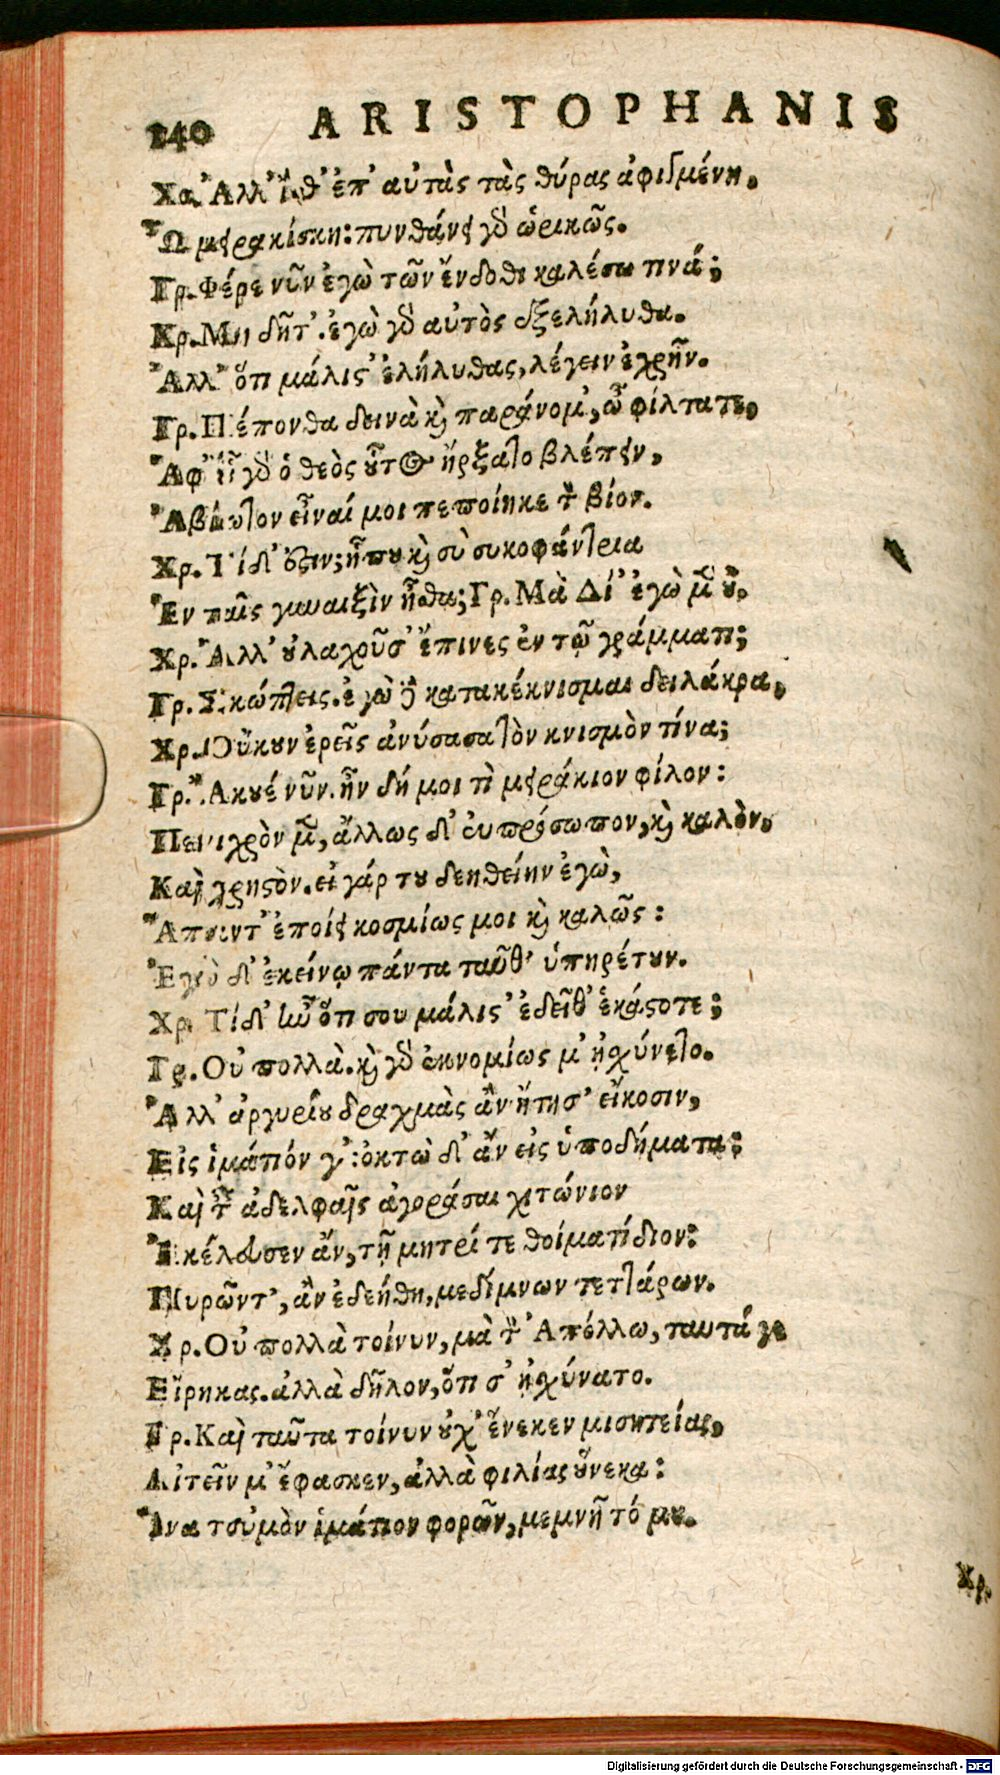 240 ARISTOPHANIS
Χο. Ἀλλ' ἴσθ' ἐπ' αὐτὰς τὰς θύρας ἀφιγμένη,
Ὦ μειρακίσκη: πυνθάνει γὰρ ὡρικῶς.
Γρ. Φέρε νῦν ἐγὼ τῶν ἔνδοθι καλέσω τινά;
Χρ. Μὴ δῆτ'. ἐγὼ γὰρ αὐτὸς ἐξελήλυθα.
Ἀλλ' ὅτι μάλιστ' ἐλήλυθας, λέγειν ἐχρῆν.
Γρ. Πέπονθα δεινὰ καὶ παράνομ', ὦ φίλτατε,
Ἀφ' οὗ γὰρ ὁ θεὸς οὗτος ἤρξατο βλέπειν,
Ἀβίωτον εἶναί μοι πεποίηκε τὸν βίον.
Χρ. Τί δ' ἔστιν; ἦ που καὶ σὺ συκοφάντρια
Ἐν ταῖς γυναιξὶν ἦσθα; Γρ. Μὰ Δί' ἐγὼ μὲν οὔ.
Χρ. Ἀλλ' οὐ λαχοῦσ' ἔπινες ἐν τῷ γράμματι;
Γρ. Σκώπτεις. ἐγὼ δὲ κατακέκνισμαι δειλάκρα,
Χρ. Οὔκουν ἐρεῖς ἀνύσασα τὸν κνισμὸν τίνα;
Γρ. Ἄκουέ νῦν. ἦν δή μοι τὶ μειράκιον φίλον:
Πενιχρὸν μὲν, ἄλλως δ' εὐπρόσωπον, καὶ καλὸν,
Καὶ χρηστὸν. εἰ γάρ του δεηθείην ἐγὼ,
Ἅπαντ' ἐποίει κοσμίως μοι καὶ καλῶς:
Ἐγὼ δ' ἐκείνῳ πάντα ταῦθ' ὑπηρέτουν.
Χρ. Τί δ' ἦν ὅτι σου μάλιστ' ἐδεῖθ' ἑκάστοτε;
Γρ. Οὐ πολλὰ. καὶ γὰρ ἐκνομίως μ' ᾐσχύνετο.
Ἀλλ' ἀργυρίου δραχμὰς ἂν ᾔτησ' εἴκοσιν,
Εἰς ἱμάτιόν γ': ὀκτὼ δ' ἂν εἰς ὑποδήματα:
Καὶ ταῖς ἀδελφαῖς ἀγοράσαι χιτώνιον
Ἐκέλευσεν ἄν, τῇ μητρί τε θοἰματίδιον:
Πυρῶντ', ἂν ἐδεήθη, μεδίμνων τεττάρων.
Χρ. Οὐ πολλὰ τοίνυν, μὰ τὸν Ἀπόλλω, ταυτά γε
Εἴρηκας. ἀλλὰ δῆλον, ὅτι σ' ᾐσχύνατο.
Γρ. Καὶ ταῦτα τοίνυν οὐχ' ἕνεκεν μισητείας,
Αἰτεῖν μ' ἔφασκεν, ἀλλὰ φιλίας οὕνεκα:
Ἵνα τοὐμὸν ἱμάτιον φορῶν, μεμνῇτό μου.
Χρ.
Digitalisierung gefördert durch die Deutsche Forschungsgemeinschaft - DFG